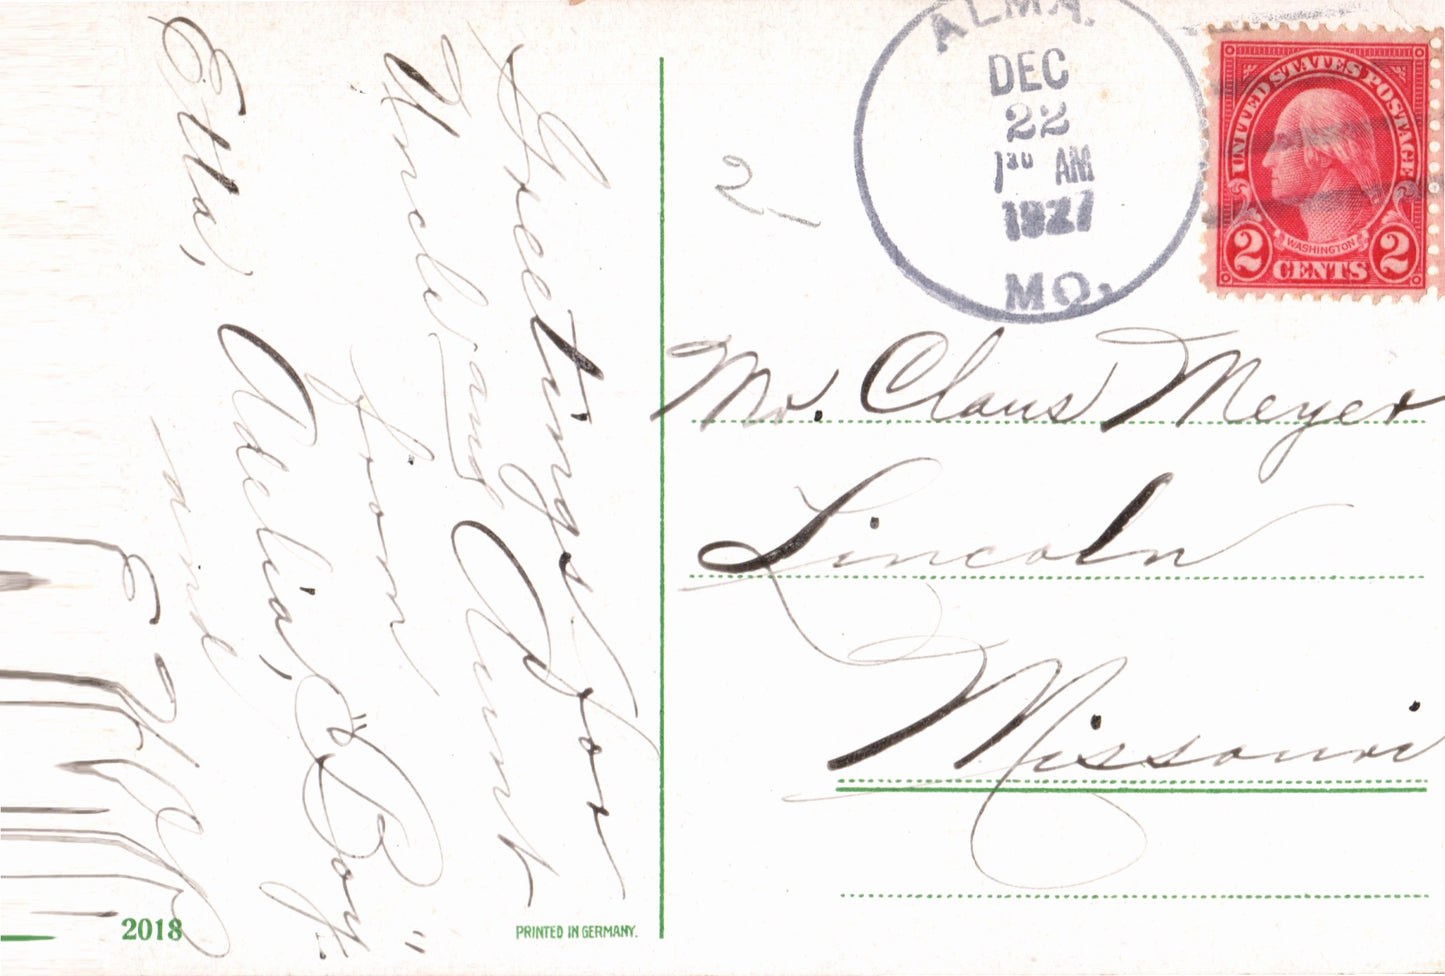 Greetings for
Uncle and Aunt
from
Etta, Adelia, "Boy"
and
2
ALMA.
DEC
22
1 30 AM
1927
MO.
UNITED STATES POSTAGE
WASHINGTON
2 CENTS 2
Mr. Claus Meyer
Lincoln
Missouri
2018
PRINTED IN GERMANY.